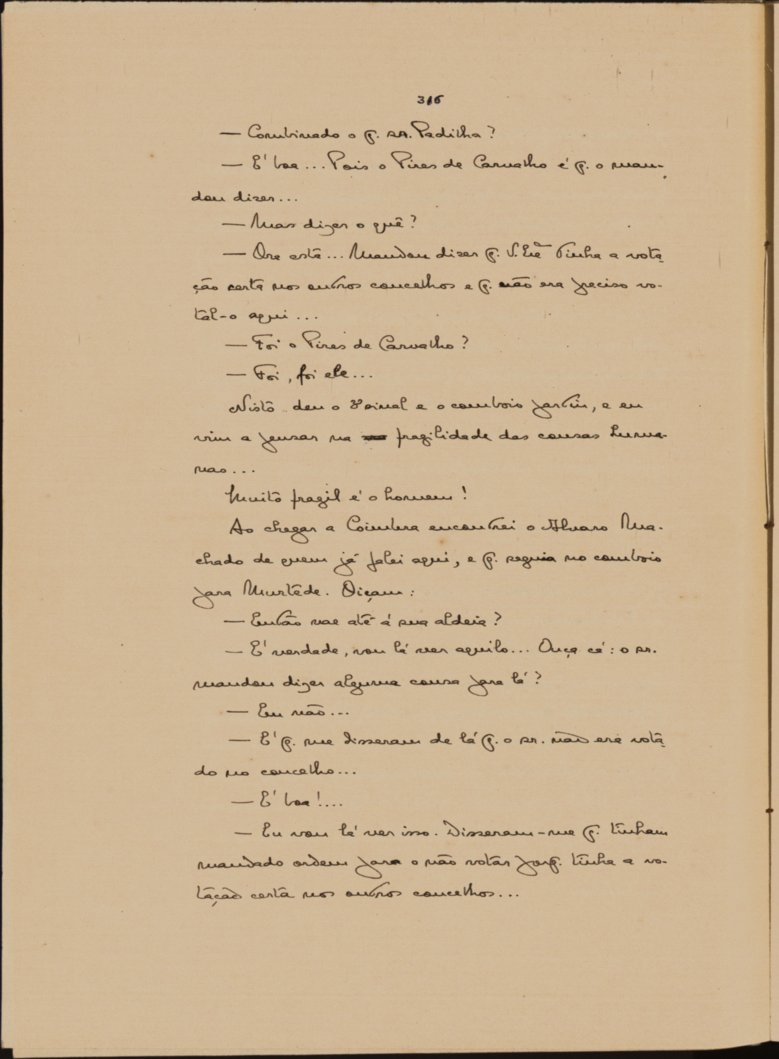 316
— Combinado o q. sr. Padilha?
— É boa... Pois o Pires de Carvalho é q. o man-
dou dizer...
— Mas dizer o quê?
— Ora esta... Mandou dizer q. V. Exª tinha a vota
ção certa nos outros concelhos e q. não era preciso vo-
tál-o aqui...
— Foi o Pires de Carvalho?
— Foi, foi ele...
Nisto deu o sinal e o comboio partiu, e eu
vim a pensar na fragilidade das cousas huma-
nas...
Muito fragil é o homem!
Ao chegar a Coimbra encontrei o Alvaro Ma-
chado de quem já falei aqui, e q. seguia no comboio
para Murtêde. Diçam:
— Então vae até á sua aldeia?
— É verdade, vou lá ver aquilo... Ouça cá: o sr.
mandou dizer alguma cousa para lá?
— Eu não...
— É q. me disseram de lá q. o sr. não era vota
do no concelho...
— É boa!...
— Eu vou lá ver isso. Disseram-me q. tinham
mandado ordem para o não votar porq. tinha a vo-
tação certa nos outros concelhos...